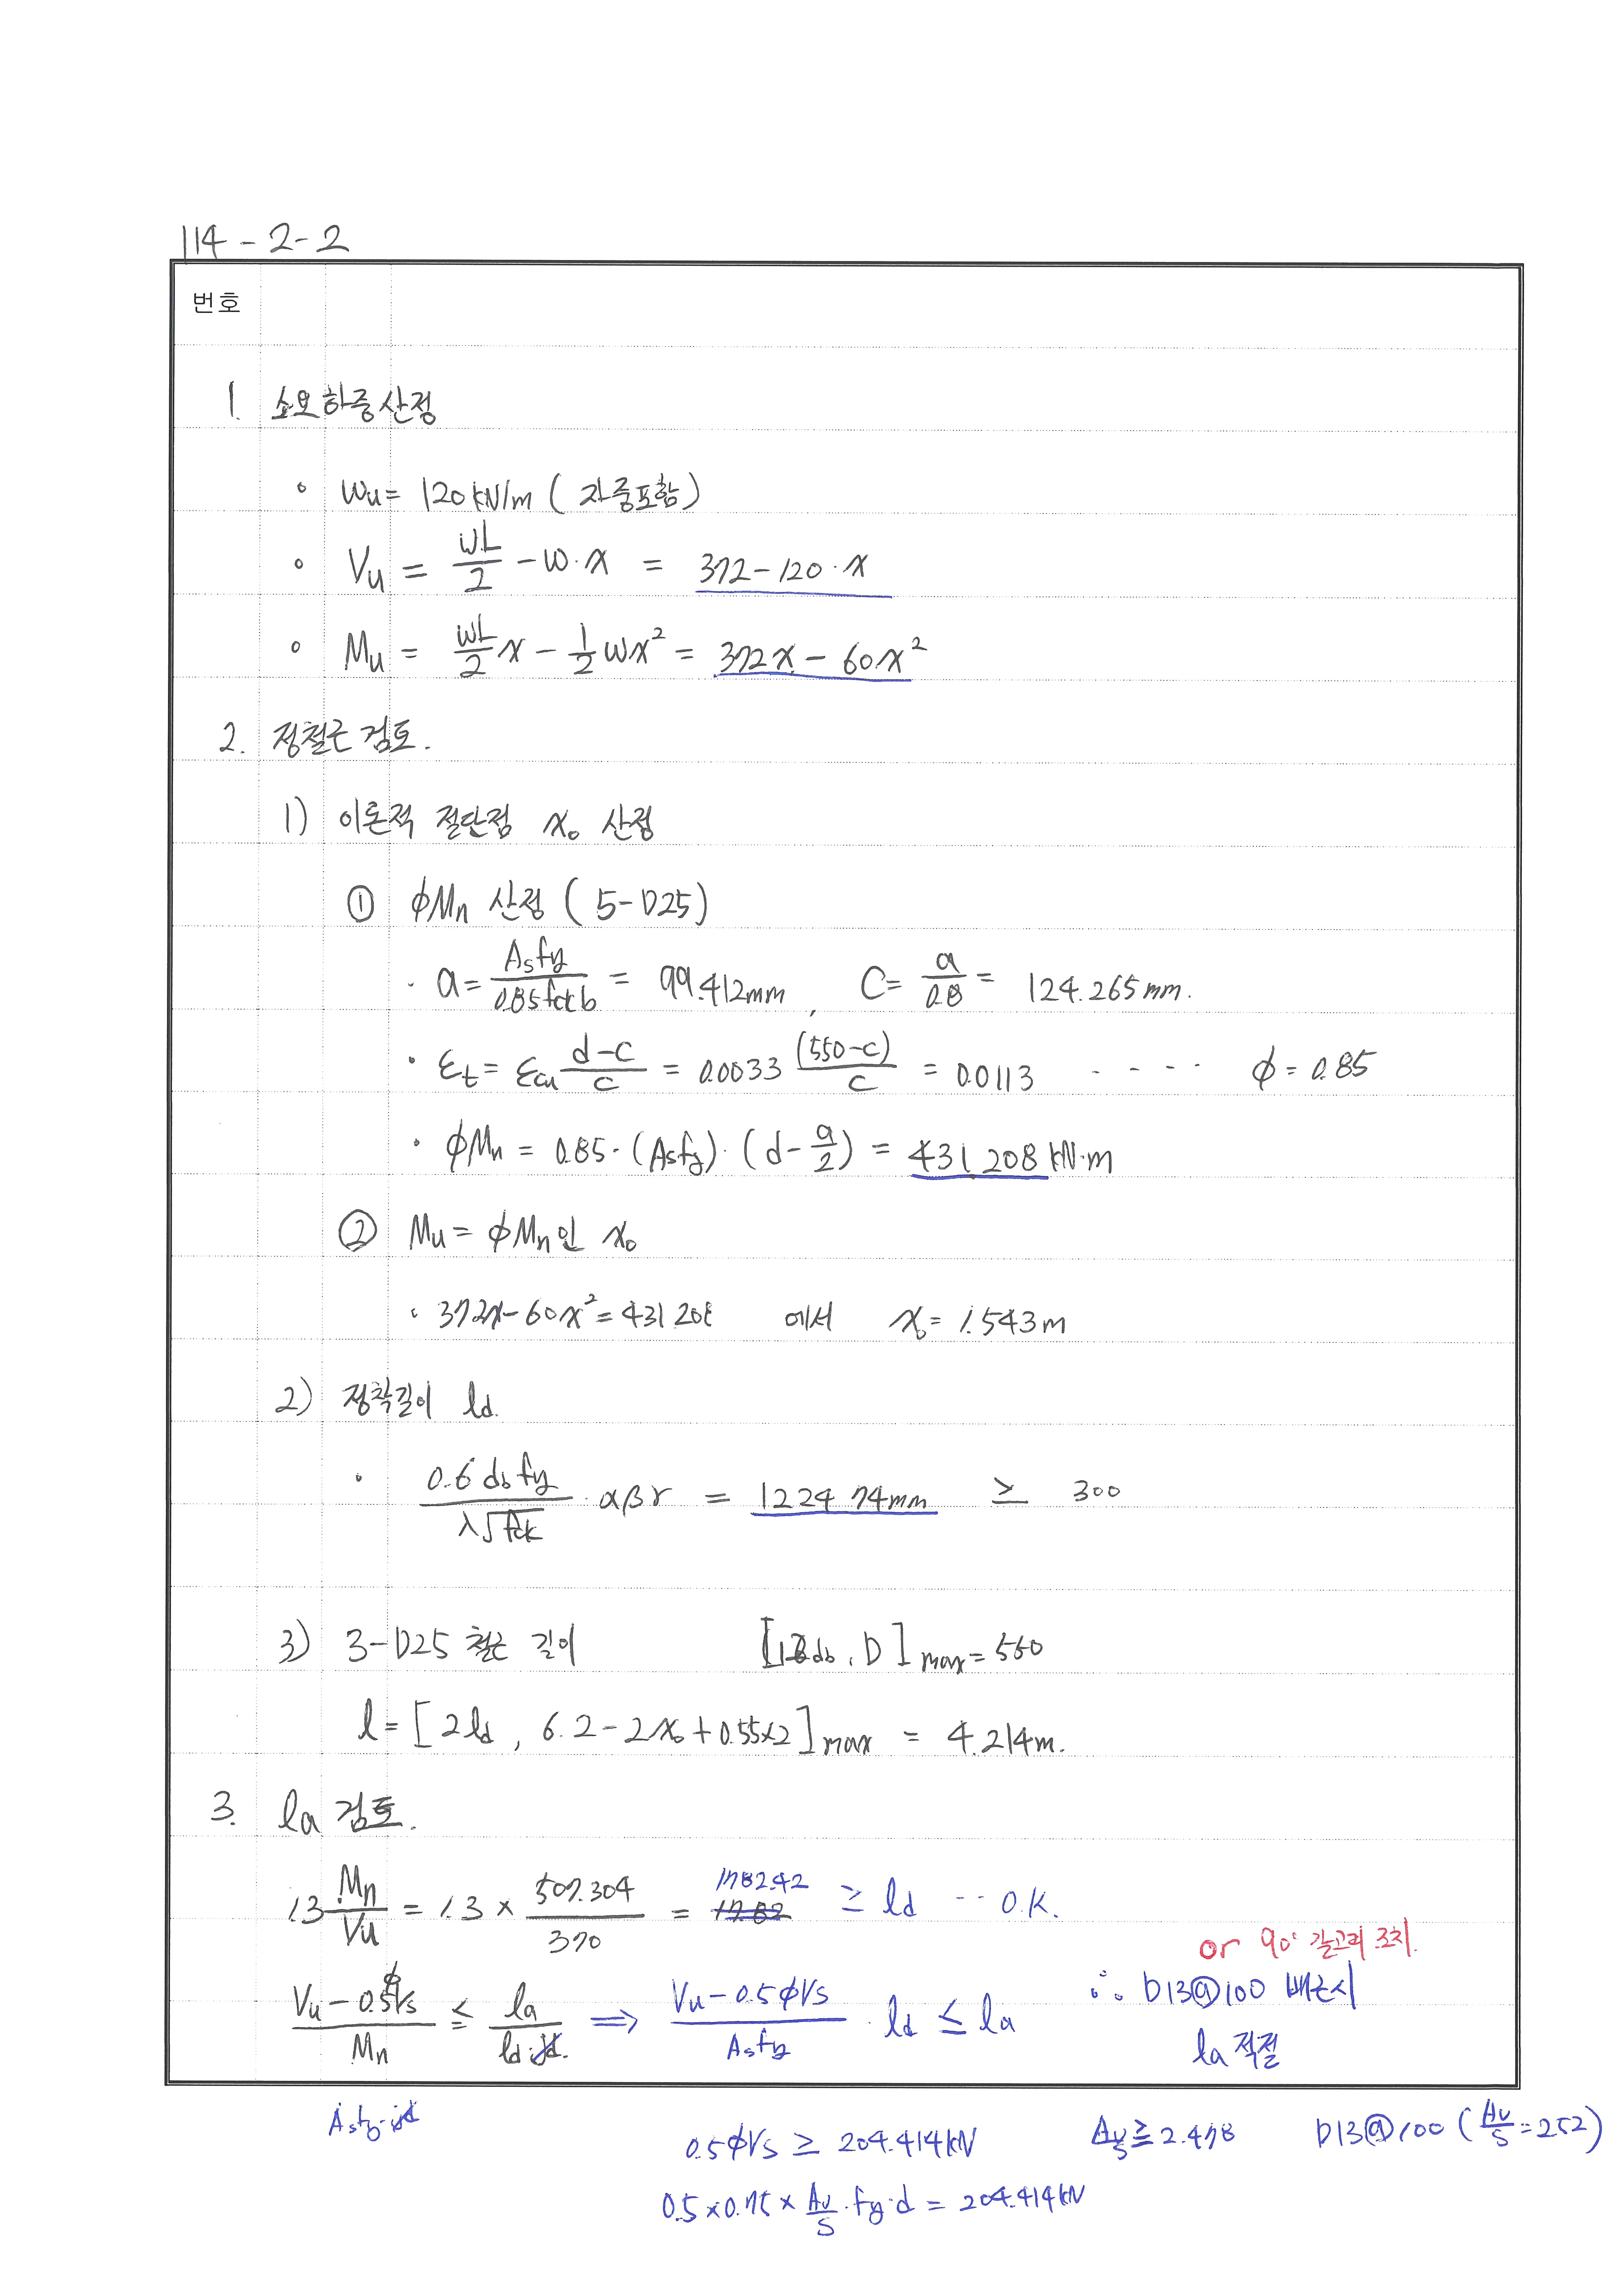 114-2-2
번호
1. 소요하중산정
∘ Wu = 120 kN/m ( 자중포함)
∘ Vu = wL/2 - w·x = 372 - 120·x
∘ Mu = wL/2 x - 1/2 wx² = 372x - 60x²
2. 정철근 검토.
1) 이론적 절단점 x₀ 산정
① ϕMn 산정 ( 5-D25)
· a = Asfy/0.85fckb = 99.412mm, C = a/0.8 = 124.265mm.
· εt = εcu d-c/c = 0.0033 (550-c)/c = 0.0113 ---- ϕ = 0.85
· ϕMn = 0.85·(Asfy)·(d-a/2) = 431.208 kN·m
② Mu = ϕMn인 x₀
· 372x - 60x² = 431.208 에서 x₀ = 1.543m
2) 정착길이 ld.
· 0.6 db fy/λ√fck · αβγ = 1224.74mm ≥ 300
3) 3-D25 철근 길이 [12db, D]max = 550
l = [2ld, 6.2 - 2x₀ + 0.55×2]max = 4.214m.
3. la 검토.
1.3 Mn/Vu = 1.3 × 507.304/370 = 1782.42 ≥ ld -- O.K.
or 90° 갈고리 조치.
Vu - 0.5ϕVs/Mn ≤ la/ld·jd. ⟹ Vu - 0.5ϕVs/Asfy · ld ≤ la ∴ D13@100 배근시
la 적절
Asfy·jd
0.5ϕVs ≥ 204.414kN Av/s ≥ 2.478 D13@100 (Av/s = 2.52)
0.5 × 0.75 × Av/s · fy·d = 204.414kN